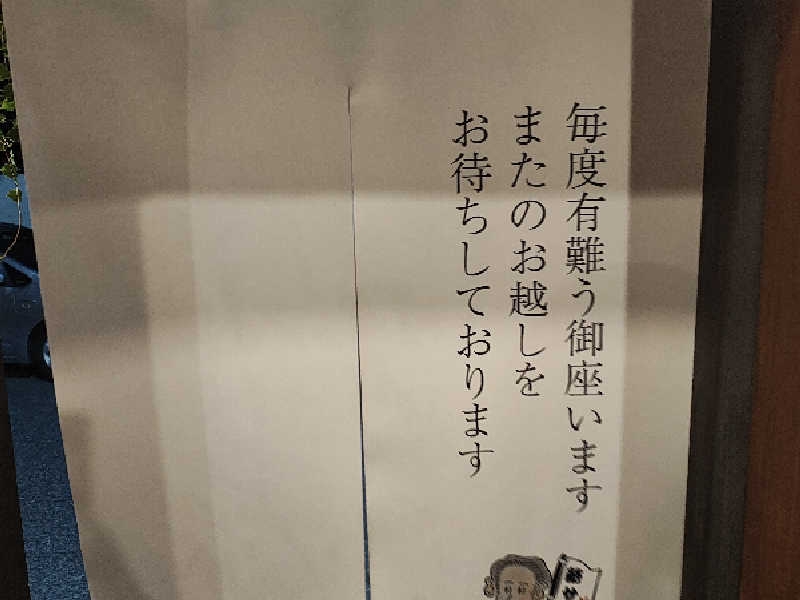 毎度有難う御座います
またのお越しを
お待ちしております